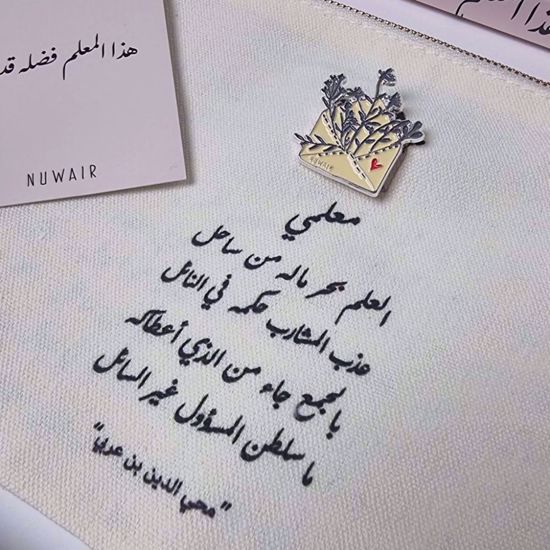 هذا المعلم فضله قد
NUWAIR
NUWAIR
معلمي
العلم بحر ماله من ساحل
عذب المشارب حكمه في النائل
بالجمع جاء من الذي أعطاكه
ما سلطن المسؤول غير السائل
"محي الدين بن عربي"